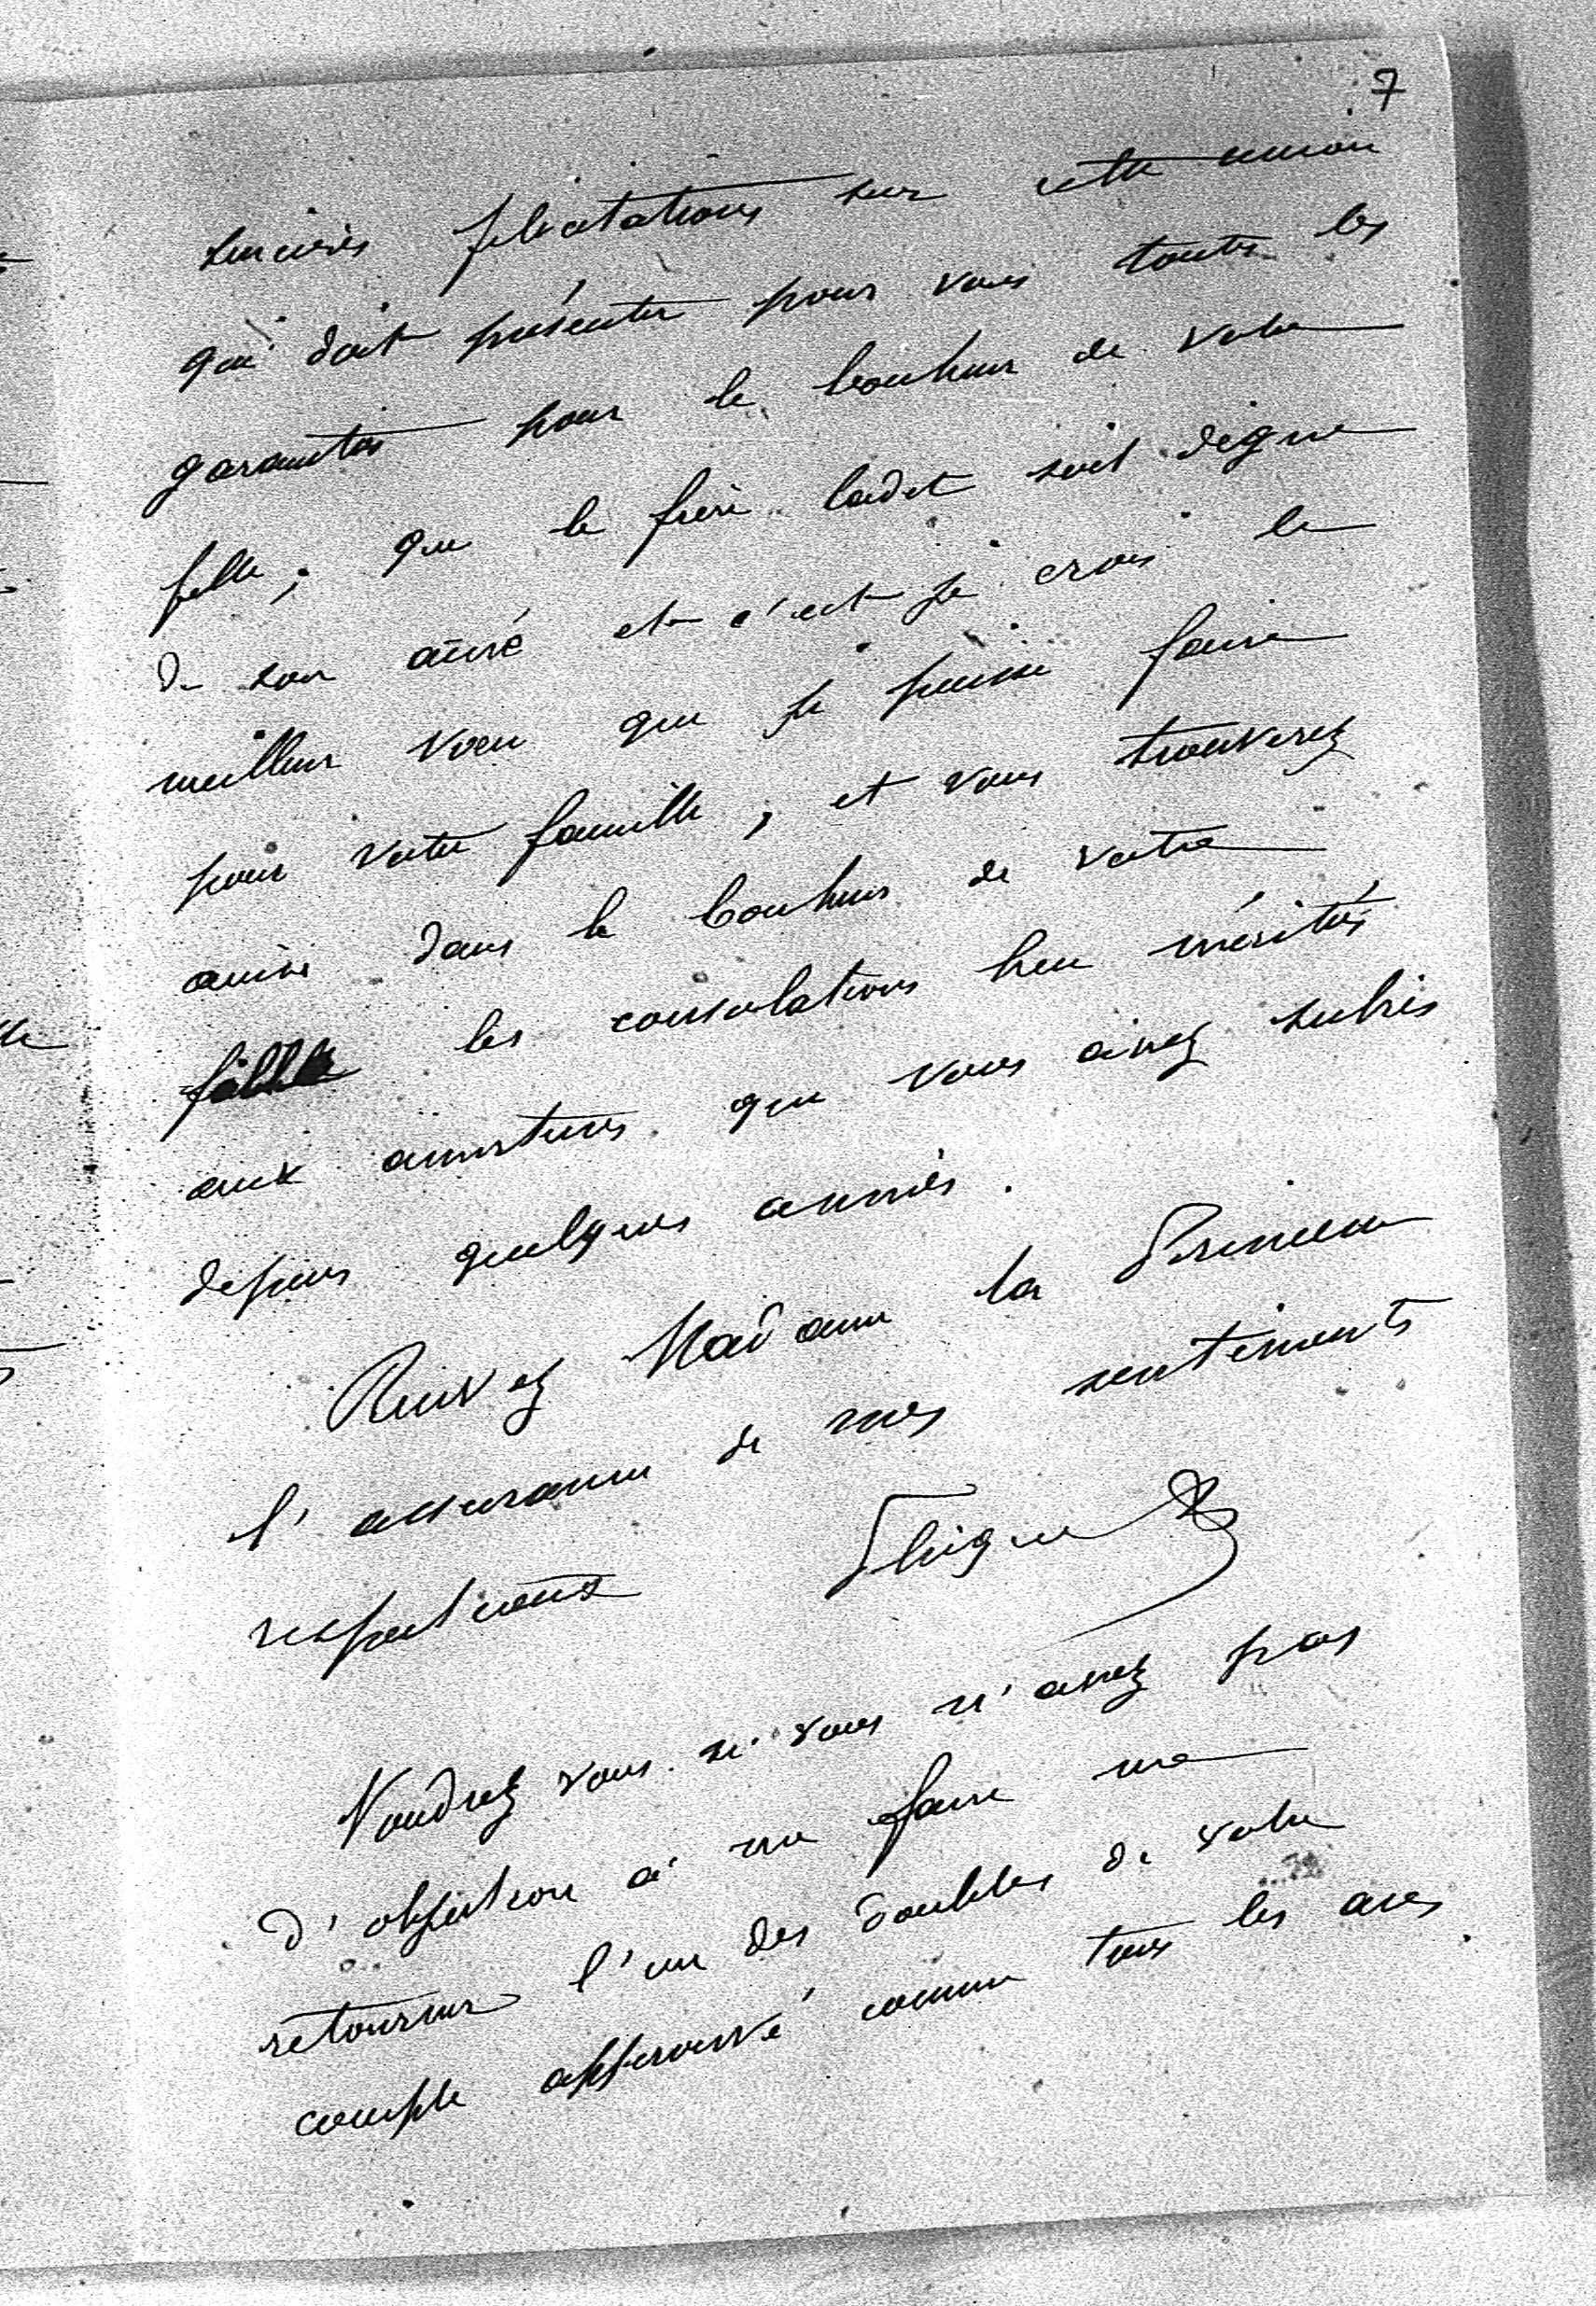 7
sincères félicitations sur cette union
qui doit présenter pour vous toutes les
garanties pour le bonheur de votre
fille ; que le frère cadet soit digne
de son ainé et c'est je crois le
meilleur voeu que je puisse faire
pour votre famille, et vous trouverez
ainsi dans le bonheur de votre
fille les consolations bien méritées
aux amertumes que vous avez subies
depuis quelques années.
Recevez Madame la Princesse
l'assurance de mes sentiments
respectueux
Voudrez vous si vous n'avez pas
d'objection à me faire me
retourner l'un des doubles de votre
compte approuvé comme tous les ans